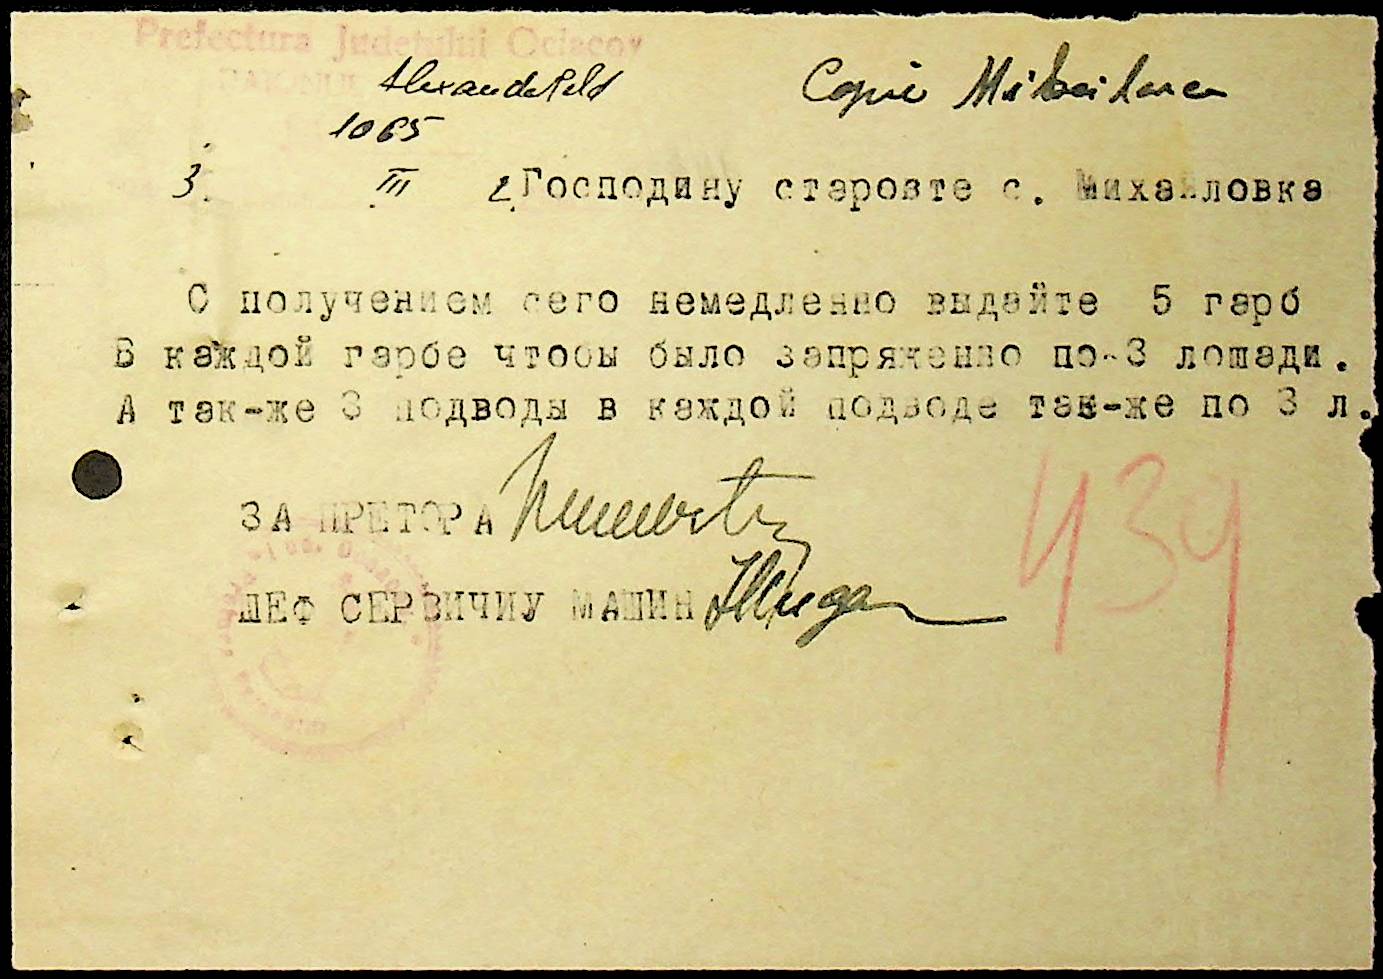 Prefectura Judetului Ociacov
RAIONUL Alexandrfeld
Copie Mihailovca
1065
3 III 2 Господину старозте с. Михайловка
С получением сего немедленно выдайте 5 гарб
В каждой гарбе чтобы было запряженно по-3 лошади.
А так-же 3 подводы в каждой подводе так-же по 3 л.
ЗА ПРЕТОРА
ШЕФ СЕРВИЧИУ МАШИН
439